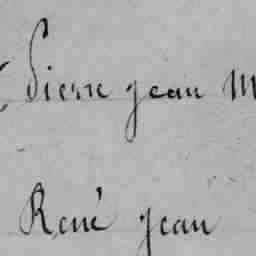 Pierre jean M
René jean